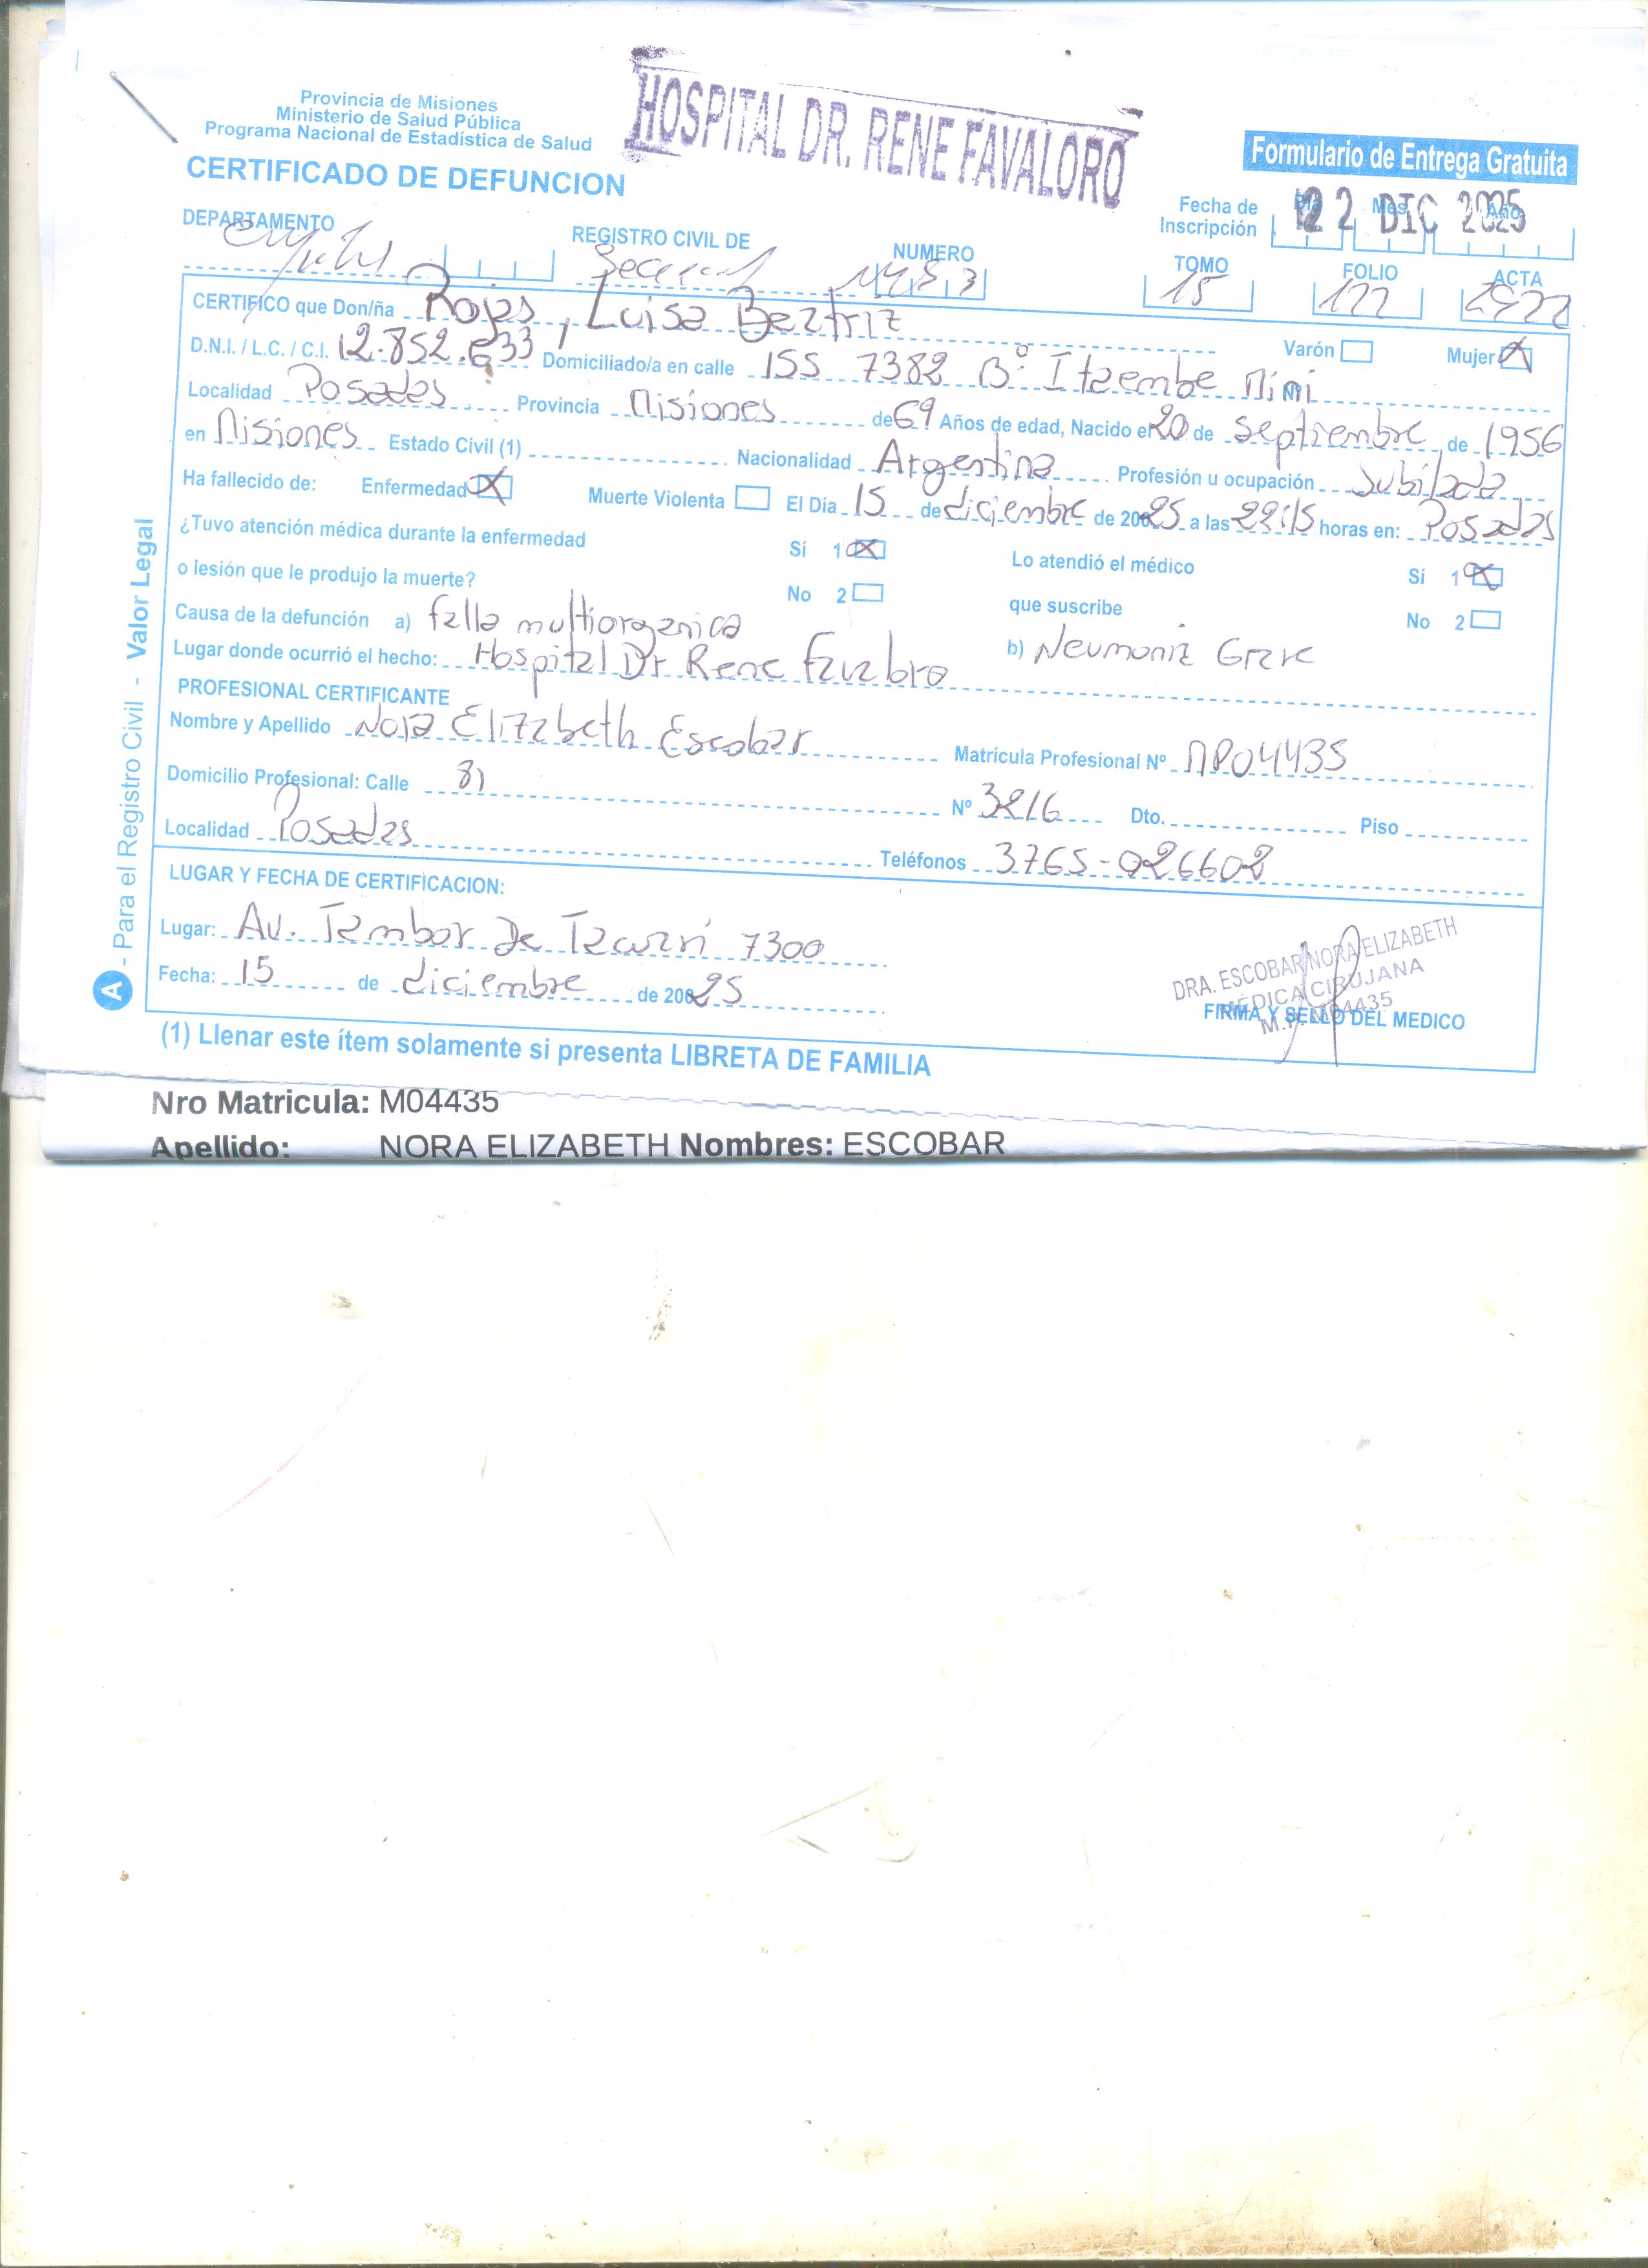 Provincia de Misiones
Ministerio de Salud Pública
Programa Nacional de Estadística de Salud
CERTIFICADO DE DEFUNCION
HOSPITAL DR. RENE FAVALORO
Formulario de Entrega Gratuita
Fecha de Inscripción 22 DIC 2025
DEPARTAMENTO REGISTRO CIVIL DE NUMERO TOMO 15 FOLIO 122 ACTA
CERTIFICO que Don/ña Rojas, Luisa Beatriz Varón Mujer X
D.N.I. / L.C. / C.I. 12.852.633 Domiciliado/a en calle 155 7382 B° Itaembe Mini Nº
Localidad Posadas Provincia Misiones de 69 Años de edad, Nacido el 20 de septiembre de 1956
en Misiones Estado Civil (1) Nacionalidad Argentina Profesión u ocupación Jubilada
Ha fallecido de: Enfermedad X Muerte Violenta El Día 15 de diciembre de 20025 a las 22:15 horas en: Posadas
¿Tuvo atención médica durante la enfermedad Sí 1 X Lo atendió el médico Sí 1 X
o lesión que le produjo la muerte? No 2 que suscribe No 2
Causa de la defunción a) falla multiorganica b) Neumonia Grave
Lugar donde ocurrió el hecho: Hospital Dr. Rene Favaloro
PROFESIONAL CERTIFICANTE
Nombre y Apellido Nora Elizabeth Escobar Matrícula Profesional Nº MP04435
Domicilio Profesional: Calle 81 Nº 3216 Dto. Piso
Localidad Posadas Teléfonos 3765-026602
LUGAR Y FECHA DE CERTIFICACION:
Lugar: Av. Tambor de Tacuari 7300
Fecha: 15 de diciembre de 20025
DRA. ESCOBAR NORA ELIZABETH
MÉDICA CIRUJANA
M.P. M04435
FIRMA Y SELLO DEL MEDICO
(1) Llenar este ítem solamente si presenta LIBRETA DE FAMILIA
A - Para el Registro Civil - Valor Legal
Nro Matricula: M04435
Apellido: NORA ELIZABETH Nombres: ESCOBAR